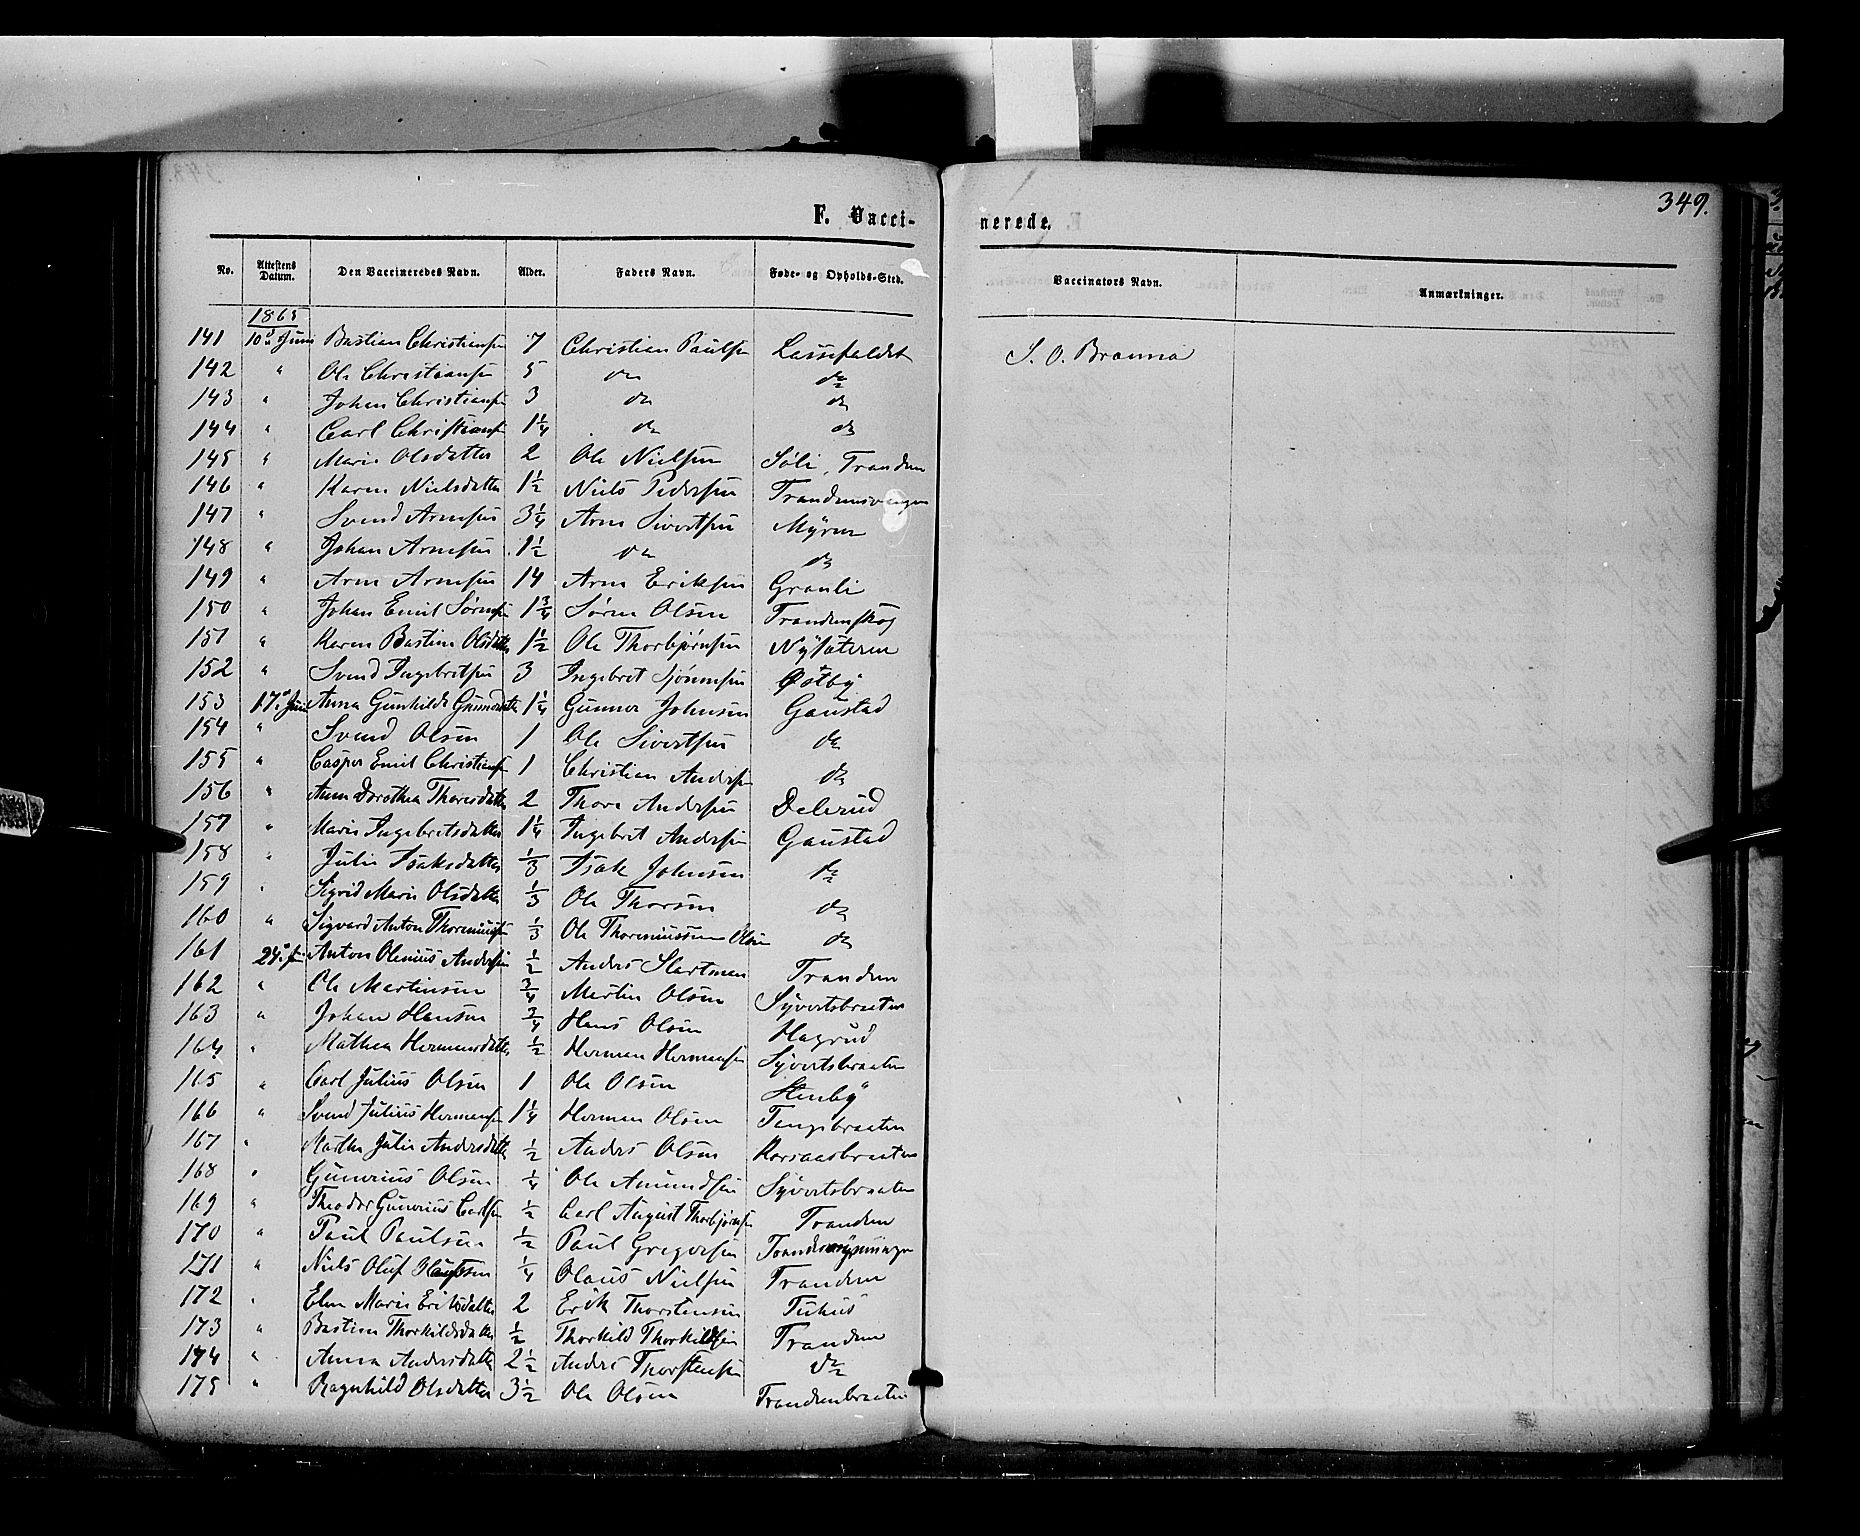 F. Vacci-
nerede.
349.
No. Attestens Datum. Den Vaccineredes Navn. Alder. Faders Navn. Føde- og Opholds-Sted. Vaccinators Navn. Anmærkninger.
1865
141 10de Juni Bastian Christiansen 7 Christian Paulsen S. O. Brænna
142 " Ole Christiansen 5 do do
143 " Johan Christiansen 3 do do
144 " Carl Christiansen 1¼ do do
145 " Marie Olsdatter 2 Ole Nielsen Søli, Trandem
146 " Karen Nielsdatter 1½ Niels Pedersen
147 " Svend Arnesen 3¼ Arne Sivertsen Myren
148 " Johan Arnesen 1½ do do
149 " Arne Arnesen 14 Arne Eriksen Granli
150 " Johan Emil Sørensen 1¾ Søren Olsen Trandemskog
151 " Karen Bastine Olsdatter 1½ Ole Thorbjørnsen Nysæteren
152 " Svend Ingebretsen 3 Ingebret Østby
153 17de Juni Anna Gunhilde Gunnersdatter 1¼ Gunner Johnsen Gaustad
154 " Svend Olsen 1 Ole Sivertsen do
155 " Casper Emil Christiansen 1 Christian Andersen do
156 " Anne Dorothea Thoresdatter 2 Thore Andersen Delerud
157 " Marie Ingebretsdatter 1¼ Ingebret Andersen Gaustad
158 " Julie Isaksdatter ⅓ Isak Johnsen do
159 " Sigrid Marie Olsdatter ⅓ Ole Thorsen do
160 " Sigvard Anton ⅓ Ole Olsen do
161 24de Juni Anton Olenius Andersen ½ Anders Trandem
162 " Ole Martinsen ¾ Martin Olsen Syvertsbraaten
163 " Johan Hansen ¾ Hans Olsen Hagrud
164 " Mathea Hermansdatter ½ Herman Hermansen Syvertsbraaten
165 " Carl Julius Olsen 1 Ole Olsen Stenby
166 " Svend Julius Hermansen 1¼ Herman Olsen Tangebraaten
167 " Marthe Julie Andersdatter ½ Anders Olsen
168 " Gunerius Olsen ¼ Ole Amundsen Syvertsbraaten
169 " Theodor Gunerius Carlsen ½ Carl August Thorbjørnsen Trandem
170 " Paul Paulsen ½ Paul Gregersen
171 " Niels Oluf ¼ Olaus Nielsen Trandem
172 " Elen Marie Eriksdatter 2 Erik Thorstensen Tuhus
173 " Bastine Thorkildsdatter ½ Thorkild Thorkildsen Trandem
174 " Anna Andersdatter 2½ Anders Thorstensen do
175 " Ragnhild Olsdatter 3½ Ole Olsen Trandembraaten